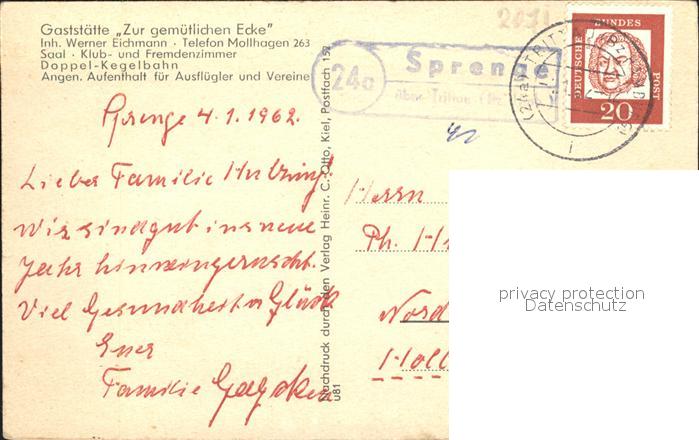 Gaststätte „Zur gemütlichen Ecke"
Inh. Werner Eichmann · Telefon Mollhagen 263
Saal · Klub- und Fremdenzimmer
Doppel-Kegelbahn
Angen. Aufenthalt für Ausflügler und Vereine
24a
Sprenge
über Trittau
DEUTSCHE
BUNDES
POST
20
Sprenge 4.1.1962.
Lieber Familie
Wir sind gut ins neue
Jahr hineingerutscht.
Viel Gesundheit u Glück
Euer
Familie
Nachdruck durch den Verlag Heinr. C. Otto, Kiel, Postfach 152
u81
Herrn
Ph. H
Nord
Holl
privacy protection
Datenschutz